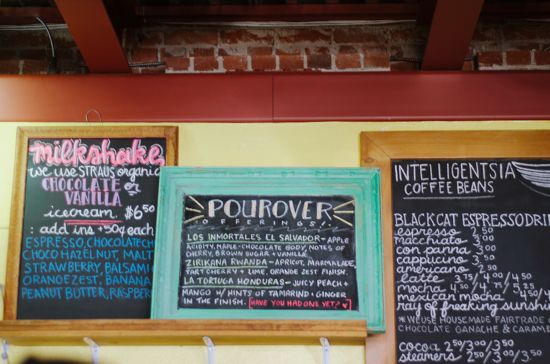 milkshakes
we use STRAUS organic
CHOCOLATE or
VANILLA
icecream $6.50
: add ins :+50¢ each
ESPRESSO, CHOCOLATE CH
CHOCO HAZELNUT, MALT
STRAWBERRY, BALSAMI
ORANGE ZEST, BANANA
PEANUT BUTTER, RASPBER
POUROVER
OFFERINGS!!
LOS INMORTALES EL SALVADOR- APPLE
ACIDITY, MAPLE-CHOCOLATE BODY, NOTES OF
CHERRY, BROWN SUGAR + VANILLA.
ZIRIKANA RWANDA- APRICOT, MARMALADE,
TART CHERRY + LIME, ORANGE ZEST FINISH.
LA TORTUGA HONDURAS- JUICY PEACH +
MANGO W/ HINTS OF TAMARIND + GINGER
IN THE FINISH. HAVE YOU HAD ONE YET?
INTELLIGENTSIA
COFFEE BEANS
BLACK CAT ESPRESSO DRI
espresso 2.50
macchiato 3
con panna 3
cappuccino 3.50
americano 2.50
latte 3.75/4/4.50
mocha 4.50/4.75/5.25
mexican mocha 4.50/4
ray of freaking sunshin
*WE USE HOUSEMADE FAIRTRADE
CHOCOLATE GANACHE & CARAME
cocoa 2.50/3.00/3.50
steamers 2.50/3.00/3.50